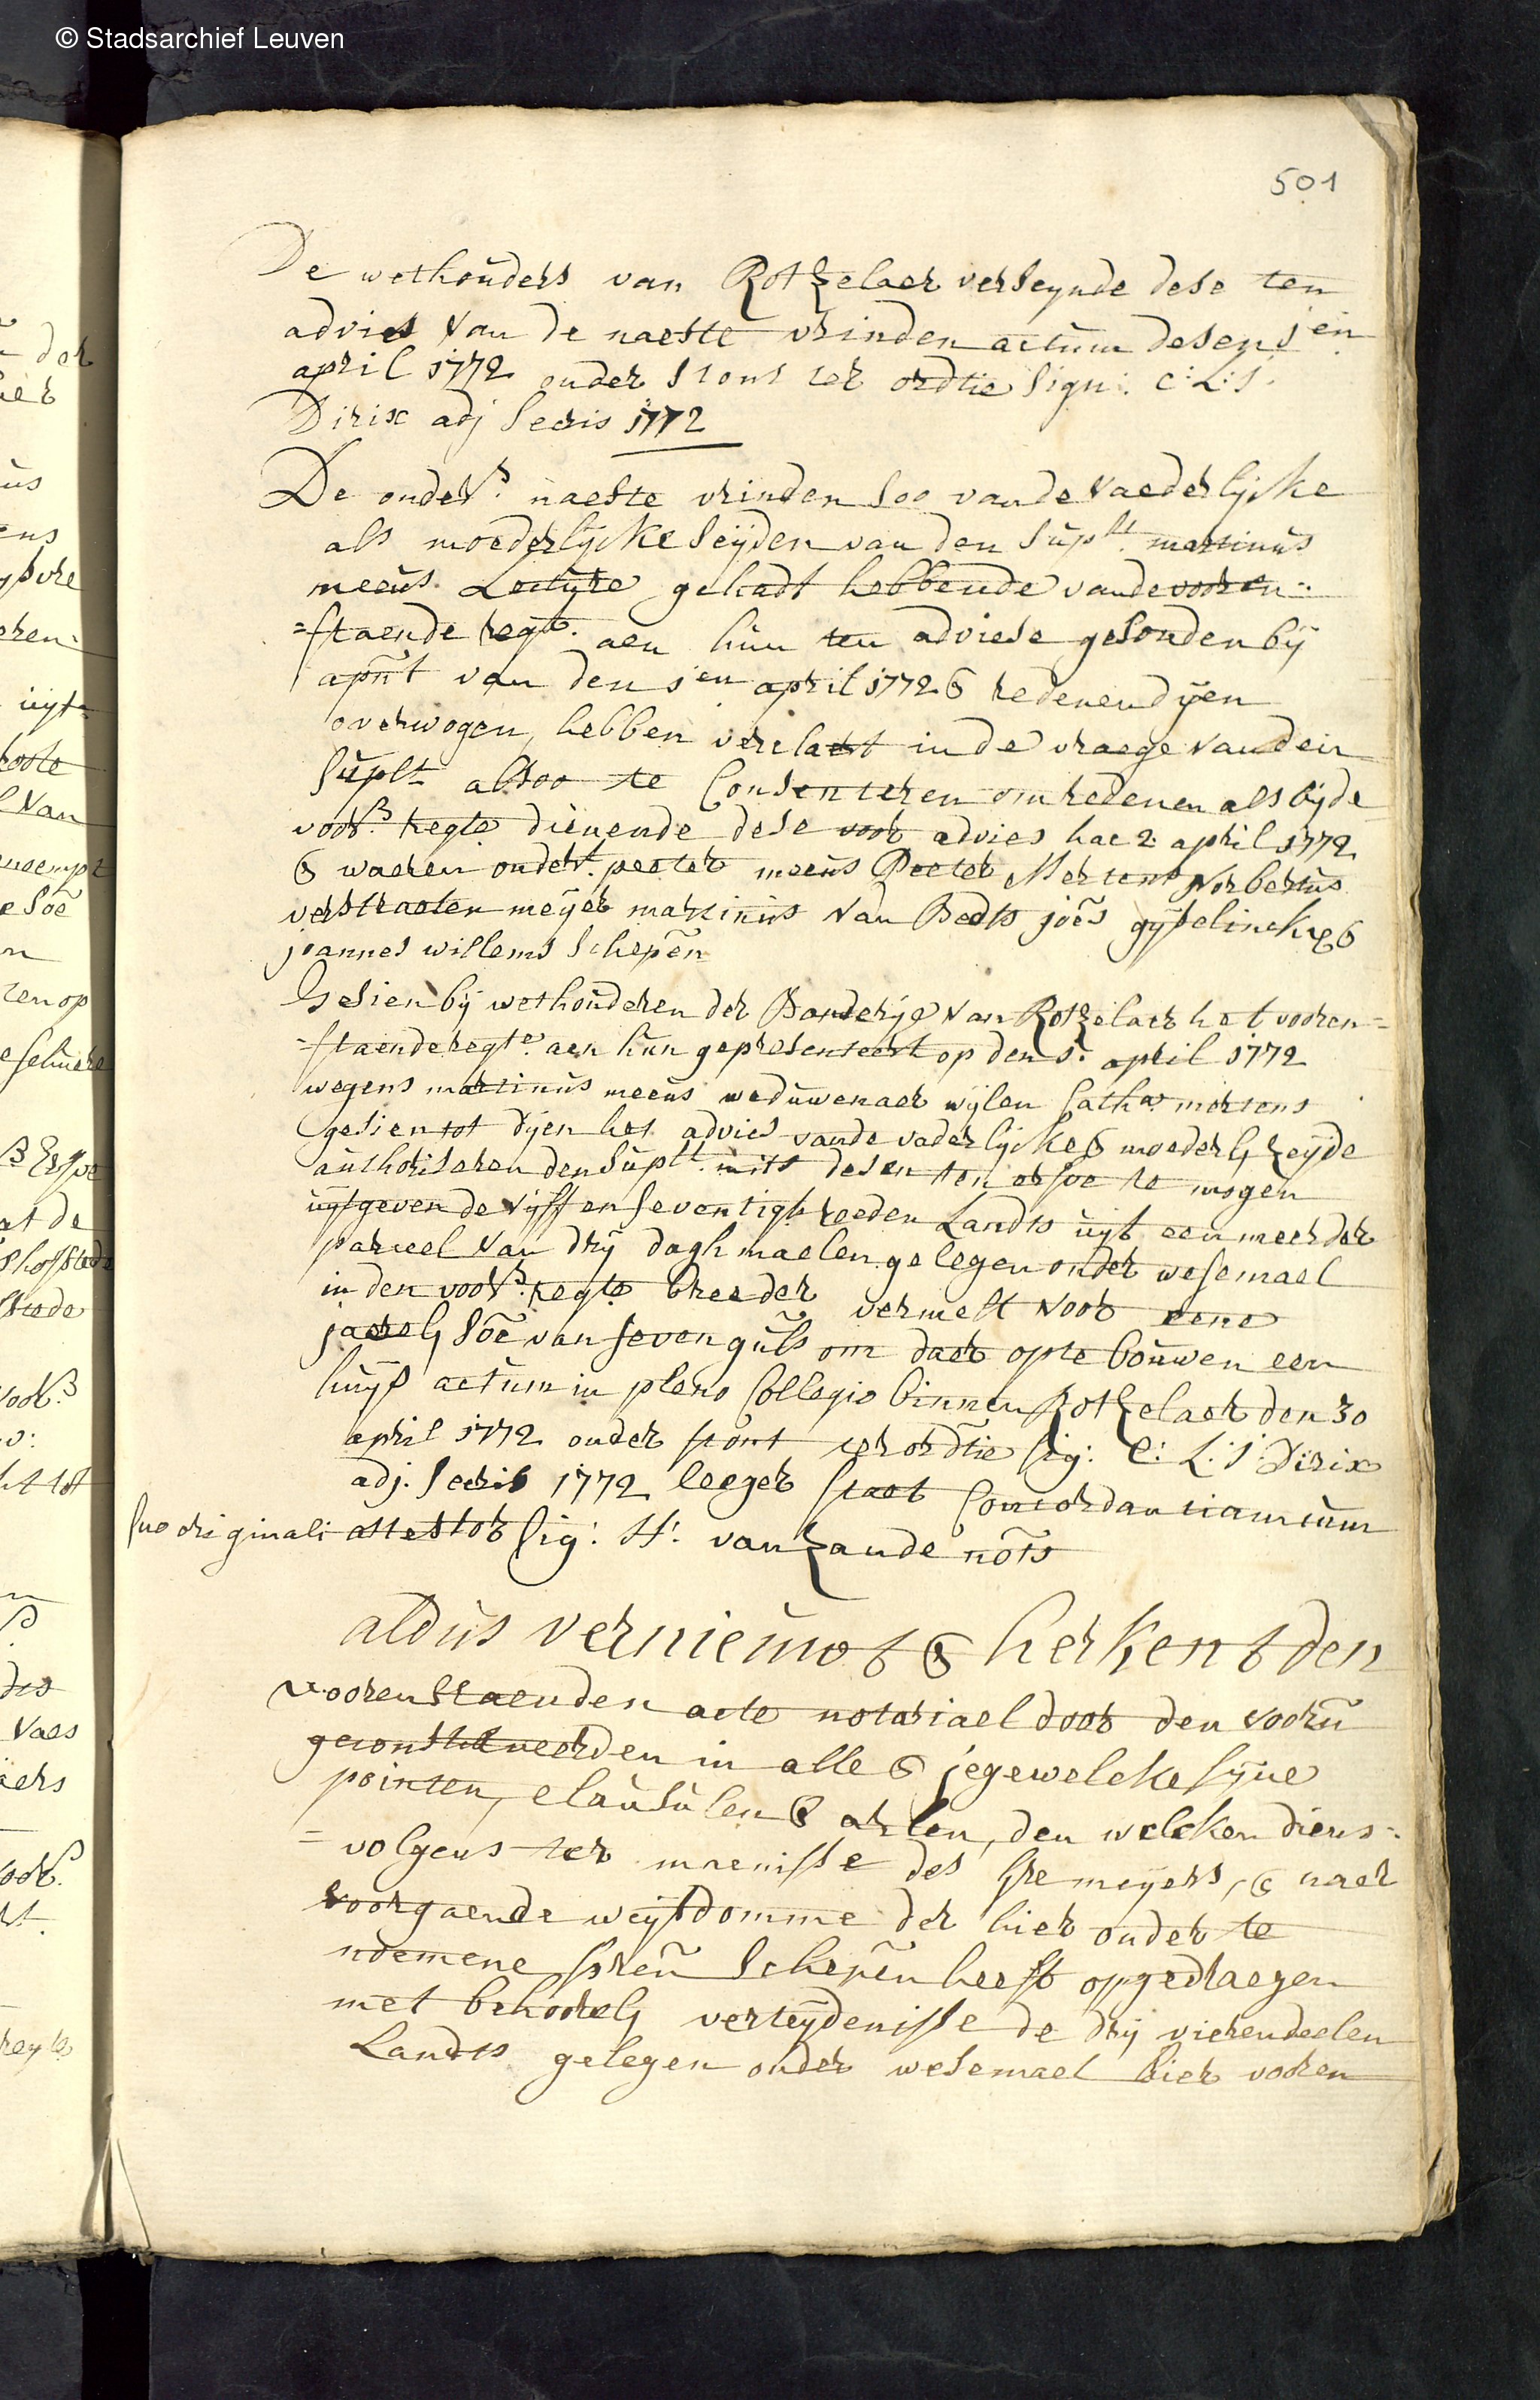 © Stadsarchief Leuven
501
De wethouders van Rotzelaer verseynde dese ten
advies van de naeste vrinden actum desen 1en
april 1772 onder stont ter ordtie sign: C:L:J:
Dirix adj Secris 1772
De onders. naeste vrinden soo vande vaederlijcke
als moederlijcke seijden van den suplt. martinus
meeus Lecture gehadt hebbende vande vooren-
=staende reqte. aen hun ten adviese gesonden bij
apñt van den 1en april 1772 & redenen dijen
overwogen, hebben verclaert in de vraege van den
suplt. alsoo te Consenteren om redenen als bijde
voors. reqte dienende dese voor advies hac 2 april 1772
& waeren ondert. peeter meeus Peeter Mertens Norbertus
verstraeten meyer martinus van Bedts joẽs gijselinckx &
joannes willems Schepẽn
Gesien bij wethouderen der Banderije van Rotzelaer het vooren=
=staende reqte. aen hun gepresenteert op den 1: april 1772
wegens martinus meeus weduwenaer wijlen Catha. mertens
gesien tot dijen het advies vande vaderlijcke & moederl: zeijde
authoriseren den suplt. mits desen ten erfve te mogen
uijtgeven de vijff en seventigh roeden Landts uijt een meerder
parceel van drij daghmaelen gelegen onder wesemael
in den voors. reqte breeder vermelt voor eene
jaerel: sõe van seven guls om daer op te bouwen een
huijs actum in pleno Collegio binnen Rotzelaer den 30
april 1772 onder stont ter ordtie sig: C: L: J: Dirix
adj. Secris 1772 leeger staet Concordantiam cum
suo originali attestor sig: H: van Zande nõts
aldus vernieuwt & herkent den
voorenstaenden acte notariael door den voorñ
geconstitueerden in alle & jegewelcke sijne
pointen, clausulen & arlen, den welcken diens-
=volgens ter maenisse des hre meyers, & naer
voorgaende weijsdomme der hier onder te
noemene hreñ Schepẽn heeft opgedraegen
met behoorel: verteijdenisse de drij vierendeelen
Landts gelegen onder wesemael hier vooren